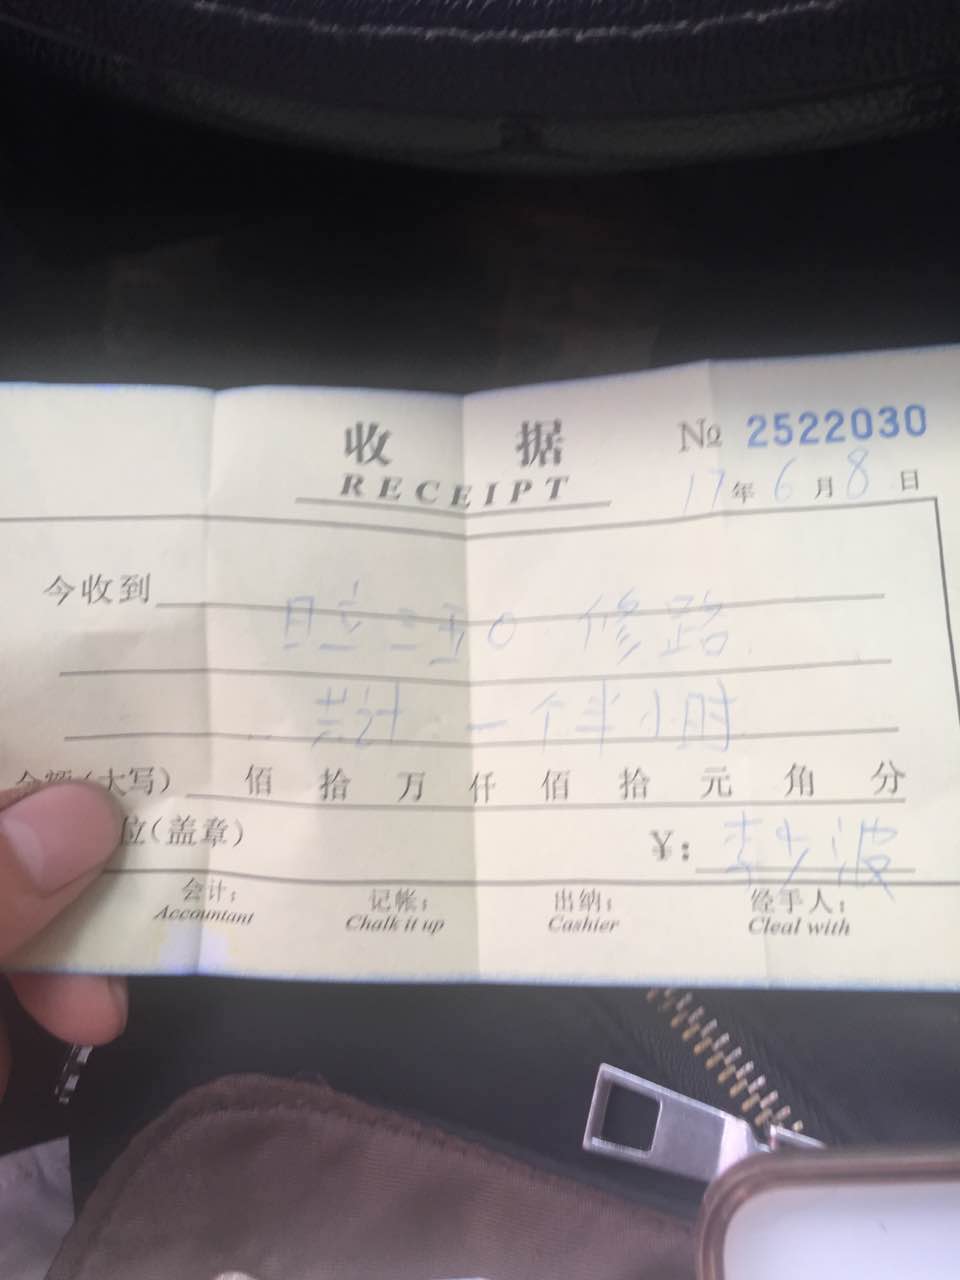 收 据
RECEIPT
№ 2522030
17年6月8日
今收到
日立三五0 修路
共计 一个半小时
金额(大写) 佰 拾 万 仟 佰 拾 元 角 分
位(盖章) ¥: 李少波
会计: 记帐: 出纳: 经手人:
Accountant Chalk it up Cashier Cleal with